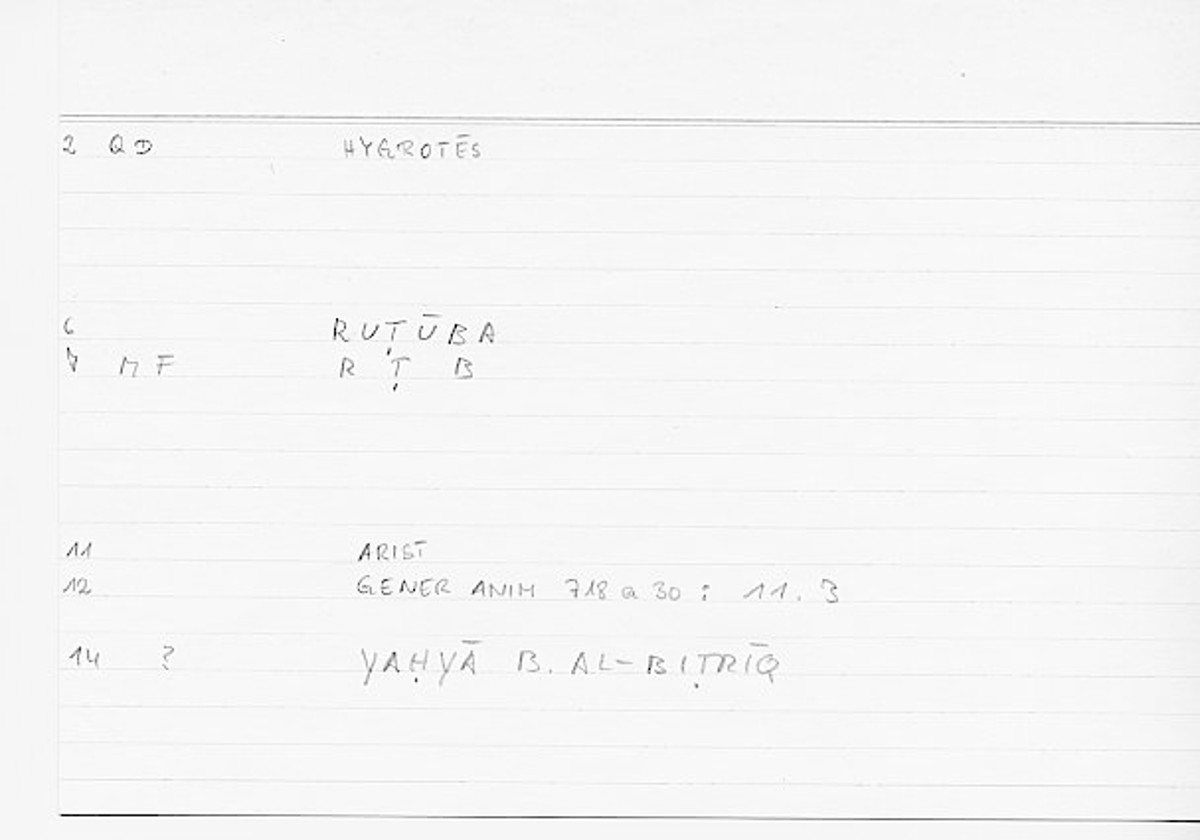 2 QD HYGROTĒS
6 RUṬŪBA
7 MF R Ṭ B
11 ARIST
12 GENER ANIM 718 a 30 : 11.3
14 ? YAḤYĀ B. AL-BIṬRĪQ